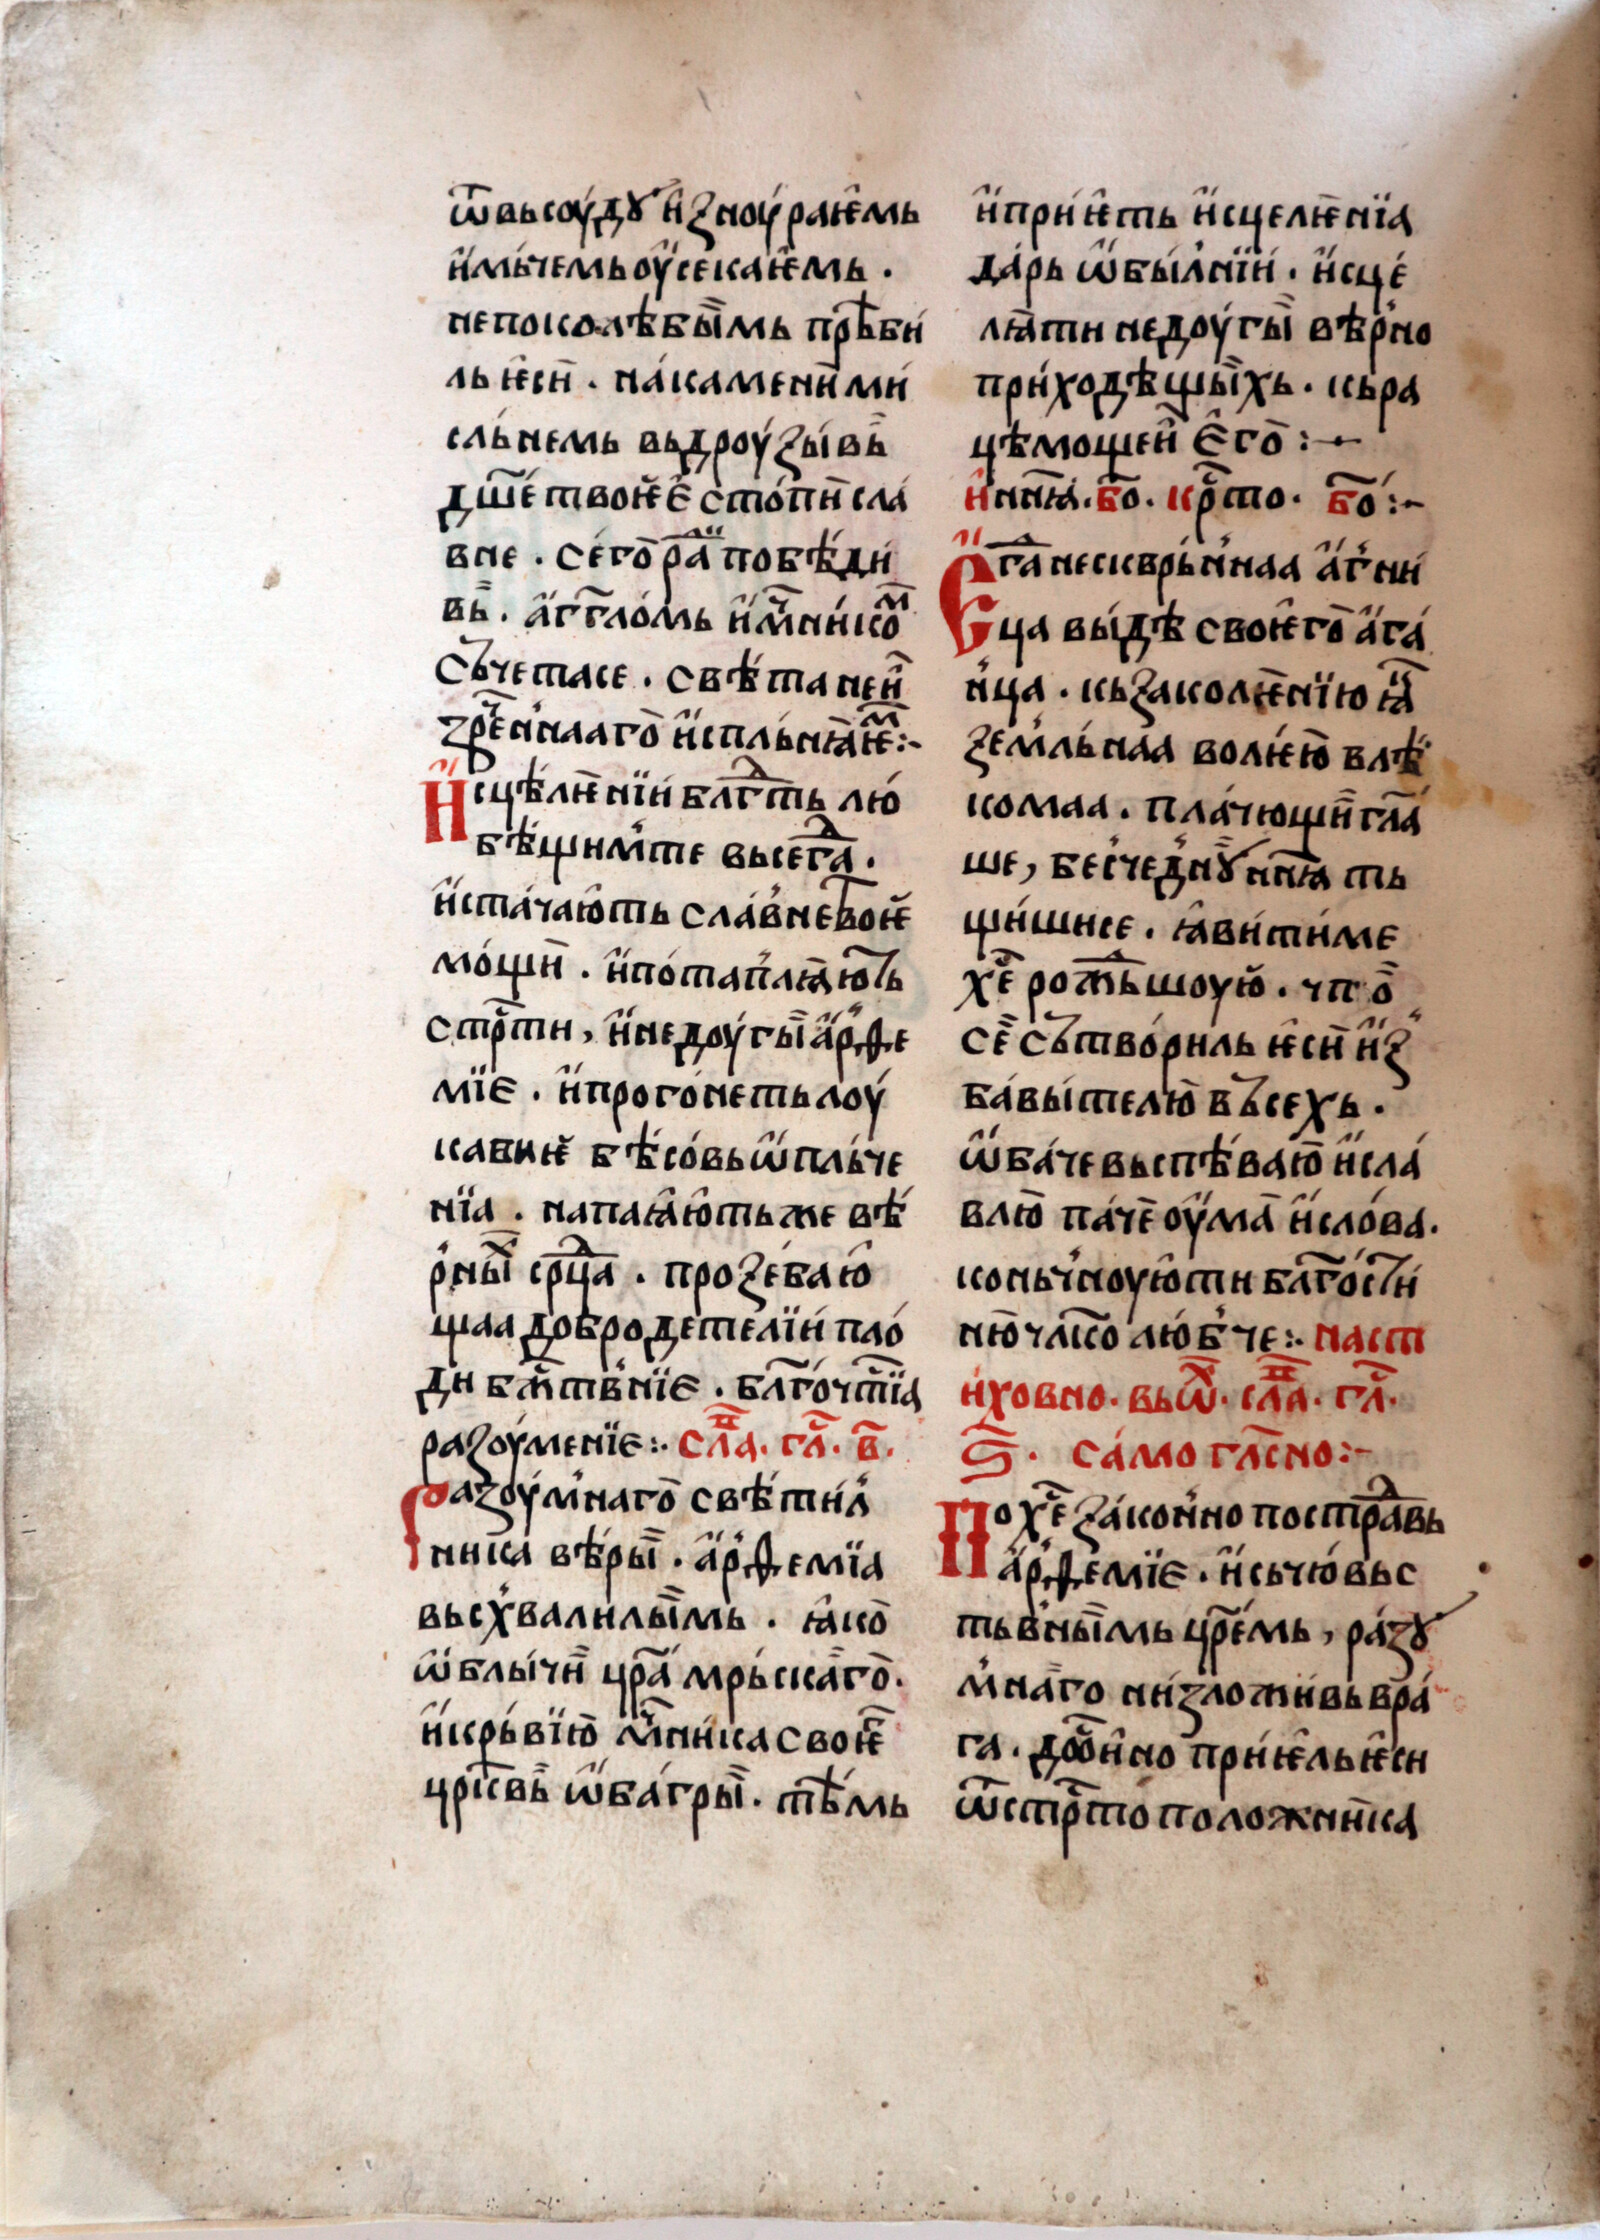 ѿвьсоу́дꙋ и҆зноура́ѥмь
и҆мьчемь оу҆секаѥ҆мь .
непоколѣбы́мь прѣ́би
ль ѥ҆сѝ . на́камени ми
сль́немь вьдроузы́вь
дш҃е́ твоѥ҆ є҆ стопѝ сла́
вне . сего̀ ра́ⷣи побѣди́
вь . а҆гг҃ло́мь и҆ мч҃ни́кѡⷨ
съчетасе . свѣ́та неи҆
зре́ⷱ҇ннааго̀ и҆спль́нꙗ́ѥⷨ:-
И҆сцѣлѥ́нїи блгⷣть лю́
бѣщи́мте вьсегⷣа .
и҆ста́чаю҆ть сла́вне твоѥ҆
мо́щи . и҆ пота́плꙗ́ють
стрⷭ҇ти , и҆ недоу́гы а҆рꙅе
мїе . и҆ прого́неть лоу́
кавиѥ бѣсо́вь ѡ҆пль́че
нїа . напаꙗ҆ю҆ть же вѣ́
рныⷯ срⷣца . прозе́баю҆
щаа добродетелїи пло́
ди бжⷭ҇твнїе . блго́чтⷭ҇їа
разоу́менїе:. слаⷡ҇. гл҃. в҃.
Разоу́мнаго̀ свѣти́л
ника вѣ́ры . а҆рꙅемїа
вьсхвали́лы́мь . ꙗ҆ко̀
ѡ҆бли́чи цр҃а мрь́ска́го̀.
и҆ крь́вїю̀ мч҃ни́ка своѥ҆
црк҃вь ѡ҆ба́гры . тѣ́мь
и҆ при́ѥ҆ть и҆сцелѥ́нїа
да́рь ѡ҆би́лнїи . и҆сце́
лꙗ́ти недоу́гы вѣ́рно
при́ходѣщы́хь . кьра
цѣмощеи҆ є҆го̀ :-
И҆ ннꙗ. бо. крⷭ҇то. бо́ :-
Є҆гⷣа нескврь́ннаа а҆́гни́
ца вы́дѣ своѥ҆го̀ а҆га́
нца . кь заколѥ́нїю ꙗ҆ⷦ
земль́наа волѥю̀ влѣ
комаа . пла́чющи гл҃а́
ше , бесче́днꙋ ннꙗ ть
щи́шисе . ꙗ҆ви́ти́ме
хе҃ рожⷣьшоую҆ . чпⷮо̀
сѐ сътво́риль ѥ҆сѝ и҆з
ба́вы́телю̀ въсехь .
ѡ҆ба́че вьспѣ́ваю̀ и҆ сла́
влю̀ па́че оу҆ма̀ и҆ сло́ва.
коньчноую҆ти блго́сти
ню̀ чл҃ко лю́бче:. наст
иховно. вьѿⷯ. слаⷡ҇. гл҃.
ѕ҃. са́мо гл҃сно:-
По хе҃ за́конно постраⷣвь
а҆рꙅемїе . и҆ сьчю́вьс
тьвны́мь цр҃е́мь , ра́зꙋ
мна́го ни́зложивь вра́
га . доⷭ҇и҆но прї́ѥ҆ль ѥ҆си
ѿ стрⷭ҇то́ положника